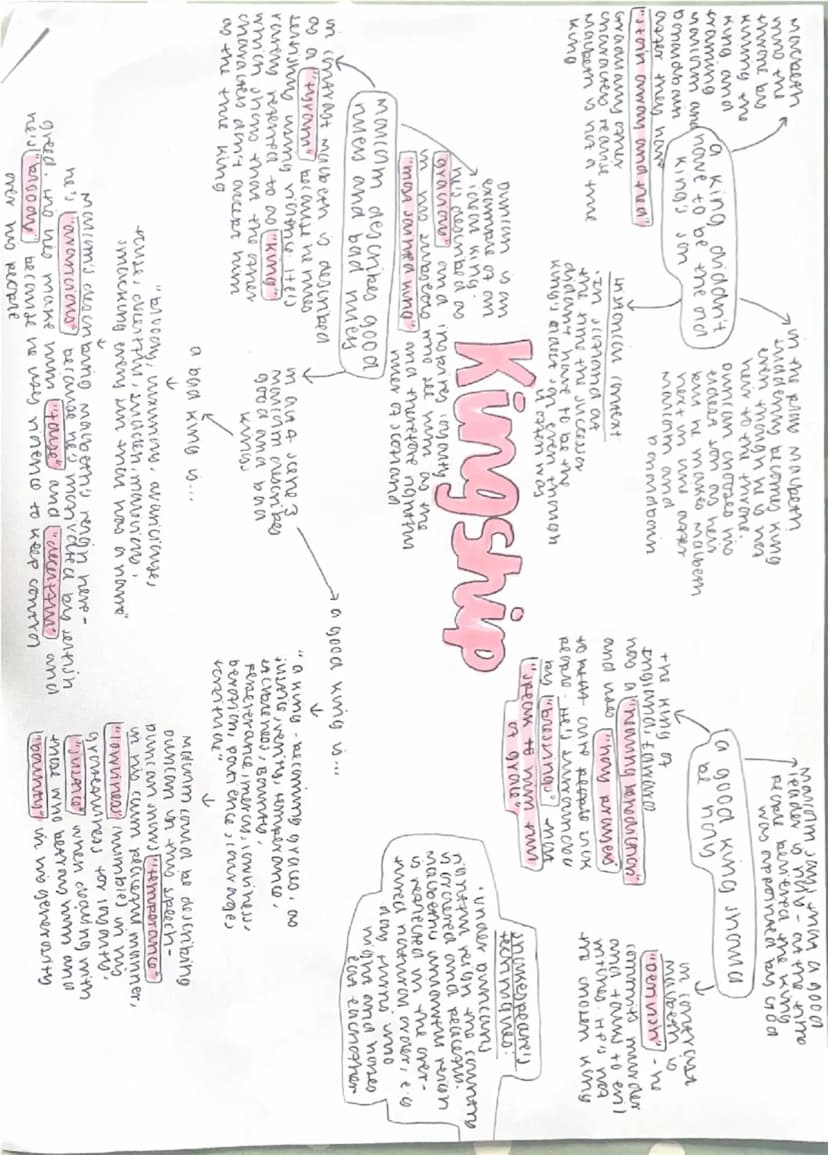 Kingship
a king diddn't
have to be the old
king's son
macbeth
into the
throne by
killing the
king and
framing
malcolm and
donalbain
after they have
"stoln away and fled"
gradually other
characters realise
macbeth is not a true
king
in the play macbeth
suddenly becomes king
even though he is no
heir to the throne.
Duncan chooses his
eldest son as heir
but he makes macbeth
next in line after
malcolm and
Donalbain
historical context
· In scotland at
the time the successor
didn't have to be the
king's eldest son even though
it often was
malcolm describes good
rulers and bad rulers
Duncan is an
example of an
ideal king.
he's described as
"gracious" and inspires loyalty
in his subjects who see him as the
"most sainted king" and therefore rightful
ruler of scotland
in contrast macbeth is described
as a "tyrant" because he rules
selfishly using violence. He's
rarely referred to as "king"
which shows that the other
characters don't accept him
as the true king
in act 4 scene 3
malcolm describes
good and bad
kings
a bad king is...
"bloody, luxurious, avaricious,
false, deceitful, sudden, malicious,
smacking every sin that has a name"
malcolm's describing macbeth's reign here-
he's "avaricious" because he's motivated by selfish
greed. lies make him "false" and "deceitful" and
he's "bloody" because he uses violence to keep control
over his people
a good king is...
"a king-becoming graces, as
justice, verity, temperance,
stableness, bounty,
perseverance, mercy, lowliness,
devotion, patience, courage,
fortitude"
Malcolm could be describing
Duncan in this speech-
Duncan shows "temperance"
in his calm personal manner,
"lowliness" (humble) in his
gratefulness for loyalty,
"justice" when dealing with
those who betray him and
"bounty" in his generosity
a good king should
be holy
malcolm says that a good
leader is holy- at the time
people believed the king
was appointed by God
the king of
England, Edward
has a "healing benediction"
and uses "holy prayers"
to help cure people sick
people. He's surrounded
by "blessings" that
"speak to him full
of grace"
in contrast
macbeth is
"devilish" - he
commits murder
and talks to evil
witches. He's not
the chosen king
shakespeare's
techniques:
· under Duncan's
rightful reign the country
is ordered and peaceful.
macbeth's unlawful reign
is reflected in the over-
turned natural order, e.g
day turns into
night and horses
eat eachother